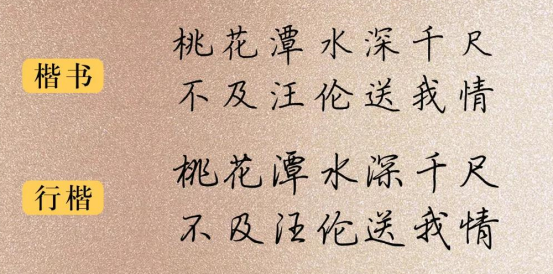 楷书
桃花潭水深千尺
不及汪伦送我情
行楷
桃花潭水深千尺
不及汪伦送我情